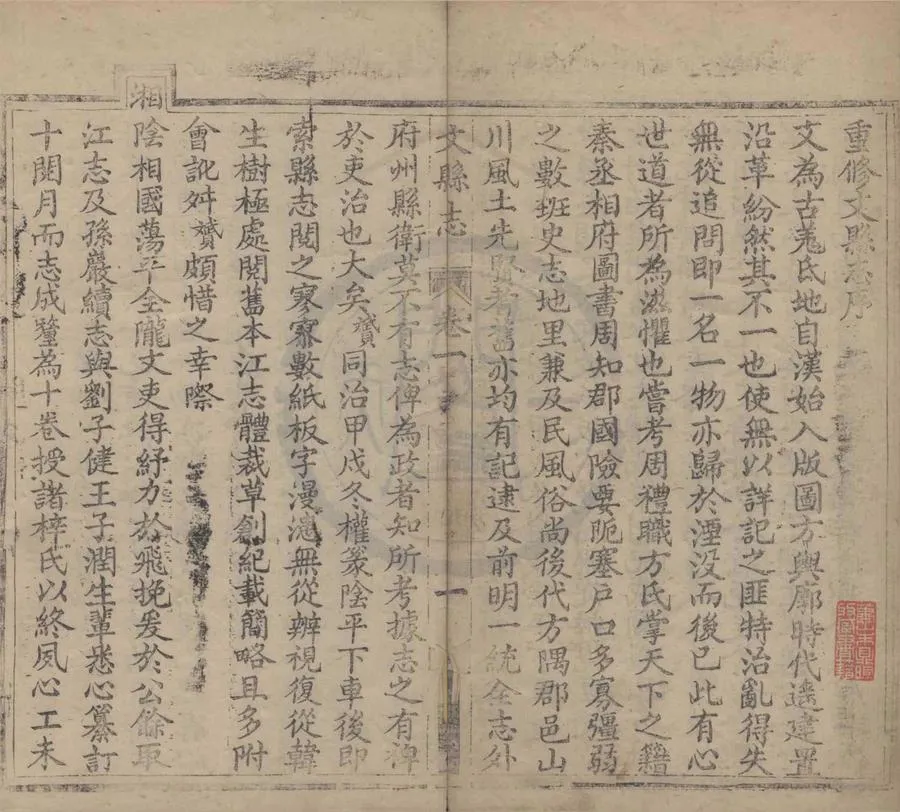 重修文縣志序
文為古羌氐地自漢始入版圖方輿廓時代遠建置
沿革紛然其不一也使無以詳記之匪特治亂得失
無從追問即一名一物亦歸於湮没而後已此有心
世道者所為滋懼也嘗考周禮職方氏掌天下之籍
秦丞相府圖書周知郡國險要阨塞戸口多寡彊弱
之數班史志地里兼及民風俗尚後代方隅郡邑山
川風土先賢耆舊亦均有記逮及前明一統全志外
文縣志 卷一 一
府州縣衛莫不有志俾為政者知所考據志之有裨
於吏治也大矣贇同治甲戌冬權篆陰平下車後即
索縣志閱之寥寥數紙板字漫漶無從辨視復從韓
生樹極處閱舊本江志體裁草創紀載簡略且多附
會訛舛贇頗惜之幸際
湘
陰相國蕩平全隴文吏得紓力於飛挽爰於公餘取
江志及孫嚴續志與劉子健王子潤生輩悉心纂訂
十閱月而志成釐為十卷授諸梓氏以終夙心工未